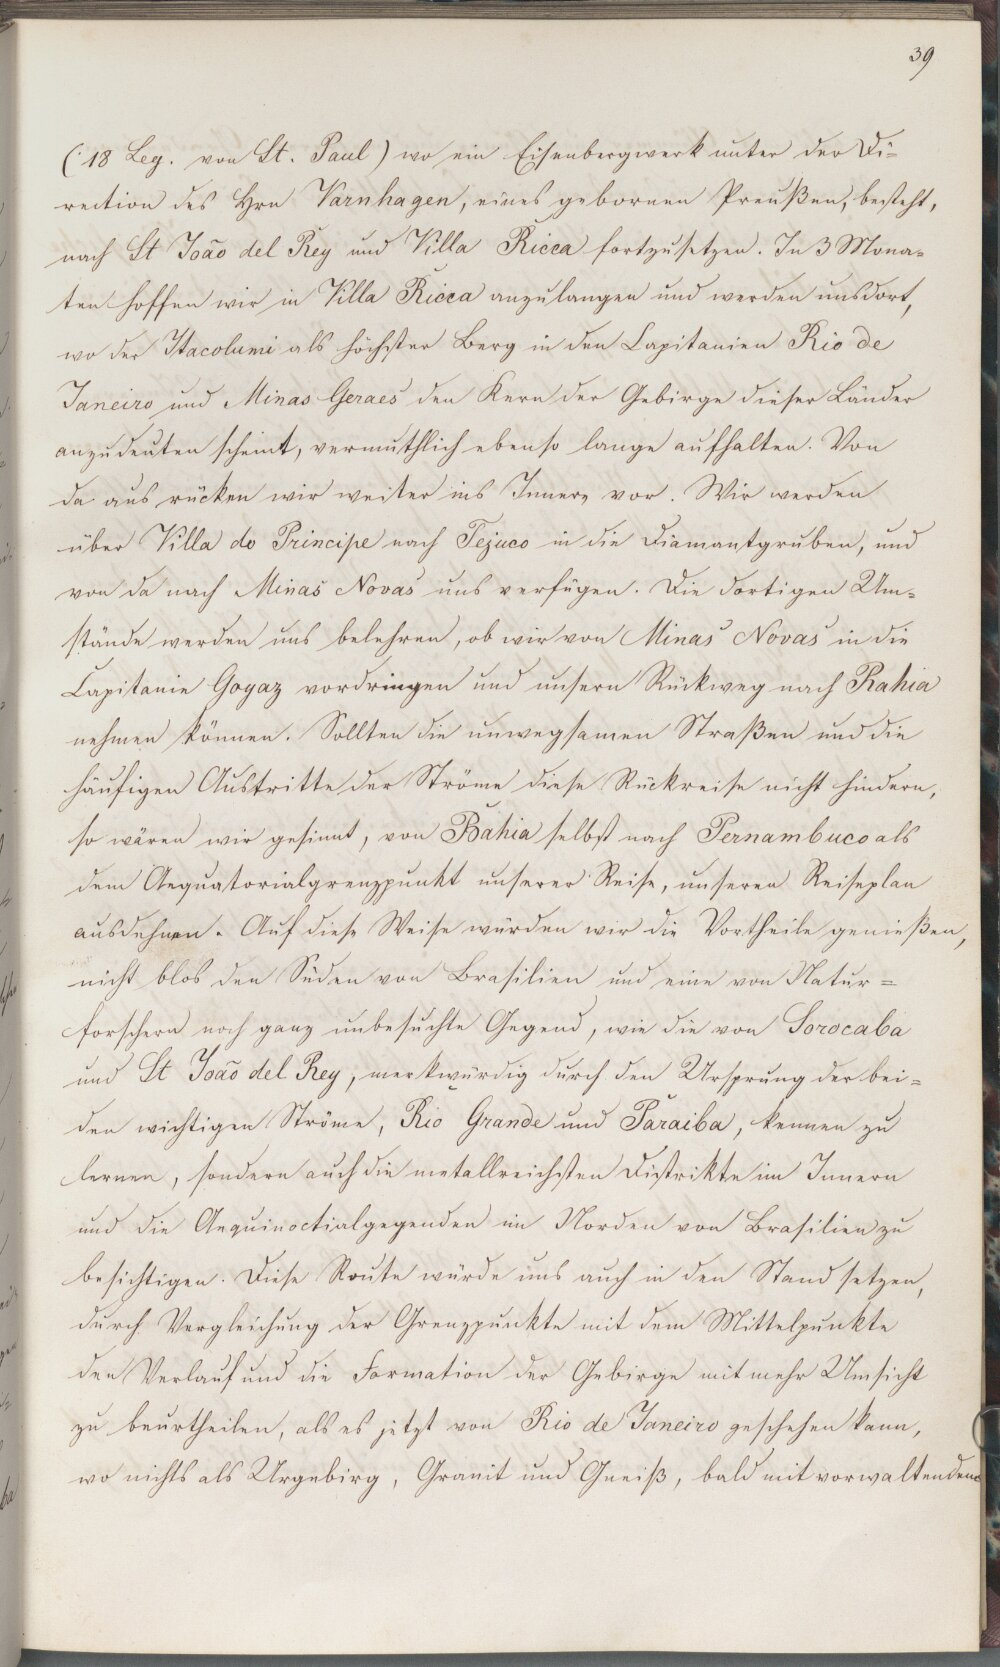 39
(: 18 Leg. von St. Paul) wo ein Eisenbergwerk unter der Di=
rection des Hrn Varnhagen, eines gebornen Preußen, besteht,
nach St João del Rey und Villa Ricca fortzusetzen. In 3 Mona=
ten hoffen wir in Villa Ricca anzulangen und werden uns dort,
wo der Itacolumi als höchster Berg in den Capitanien Rio de
Janeiro und Minas Geraes den Kern der Gebirge dieser Länder
anzudeuten scheint, vermuthlich ebenso lange aufhalten. Von
da aus rücken wir weiter ins Innere vor. Wir werden
über Villa do Principe nach Tejuco in die Diamantgruben, und
von da nach Minas Novas uns verfügen. Die dortigen Um=
stände werden uns belehren, ob wir von Minas Novas in die
Capitanie Goyaz vordringen und unsern Rückweg nach Bahia
nehmen können. Sollten die unwegsamen Straßen und die
häufigen Austritte der Ströme diese Rückreise nicht hindern,
so wären wir gesinnt, von Bahia selbst nach Pernambuco als
dem Aequatorialgrenzpunkt unserer Reise, unseren Reiseplan
ausdehnen. Auf diese Weise würden wir die Vortheile genießen,
nicht blos den Süden von Brasilien und eine von Natur=
forschern noch ganz unbesuchte Gegend, wie die von Sorocaba
und St João del Rey, merkwürdig durch den Ursprung der bei=
den wichtigen Ströme, Rio Grande und Paraiba, kennen zu
lernen, sondern auch die metallreichsten Distrikte im Innern
und die Aequinoctialgegenden im Norden von Brasilien zu
besichtigen. Diese Route würde uns auch in den Stand setzen,
durch Vergleichung der Grenzpunkte mit dem Mittelpunkte
den Verlauf und die Formation der Gebirge mit mehr Umsicht
zu beurtheilen, als es jetzt von Rio de Janeiro geschehen kann,
wo nichts als Urgebirg, Granit und Gneiß, bald mit vorwaltendem